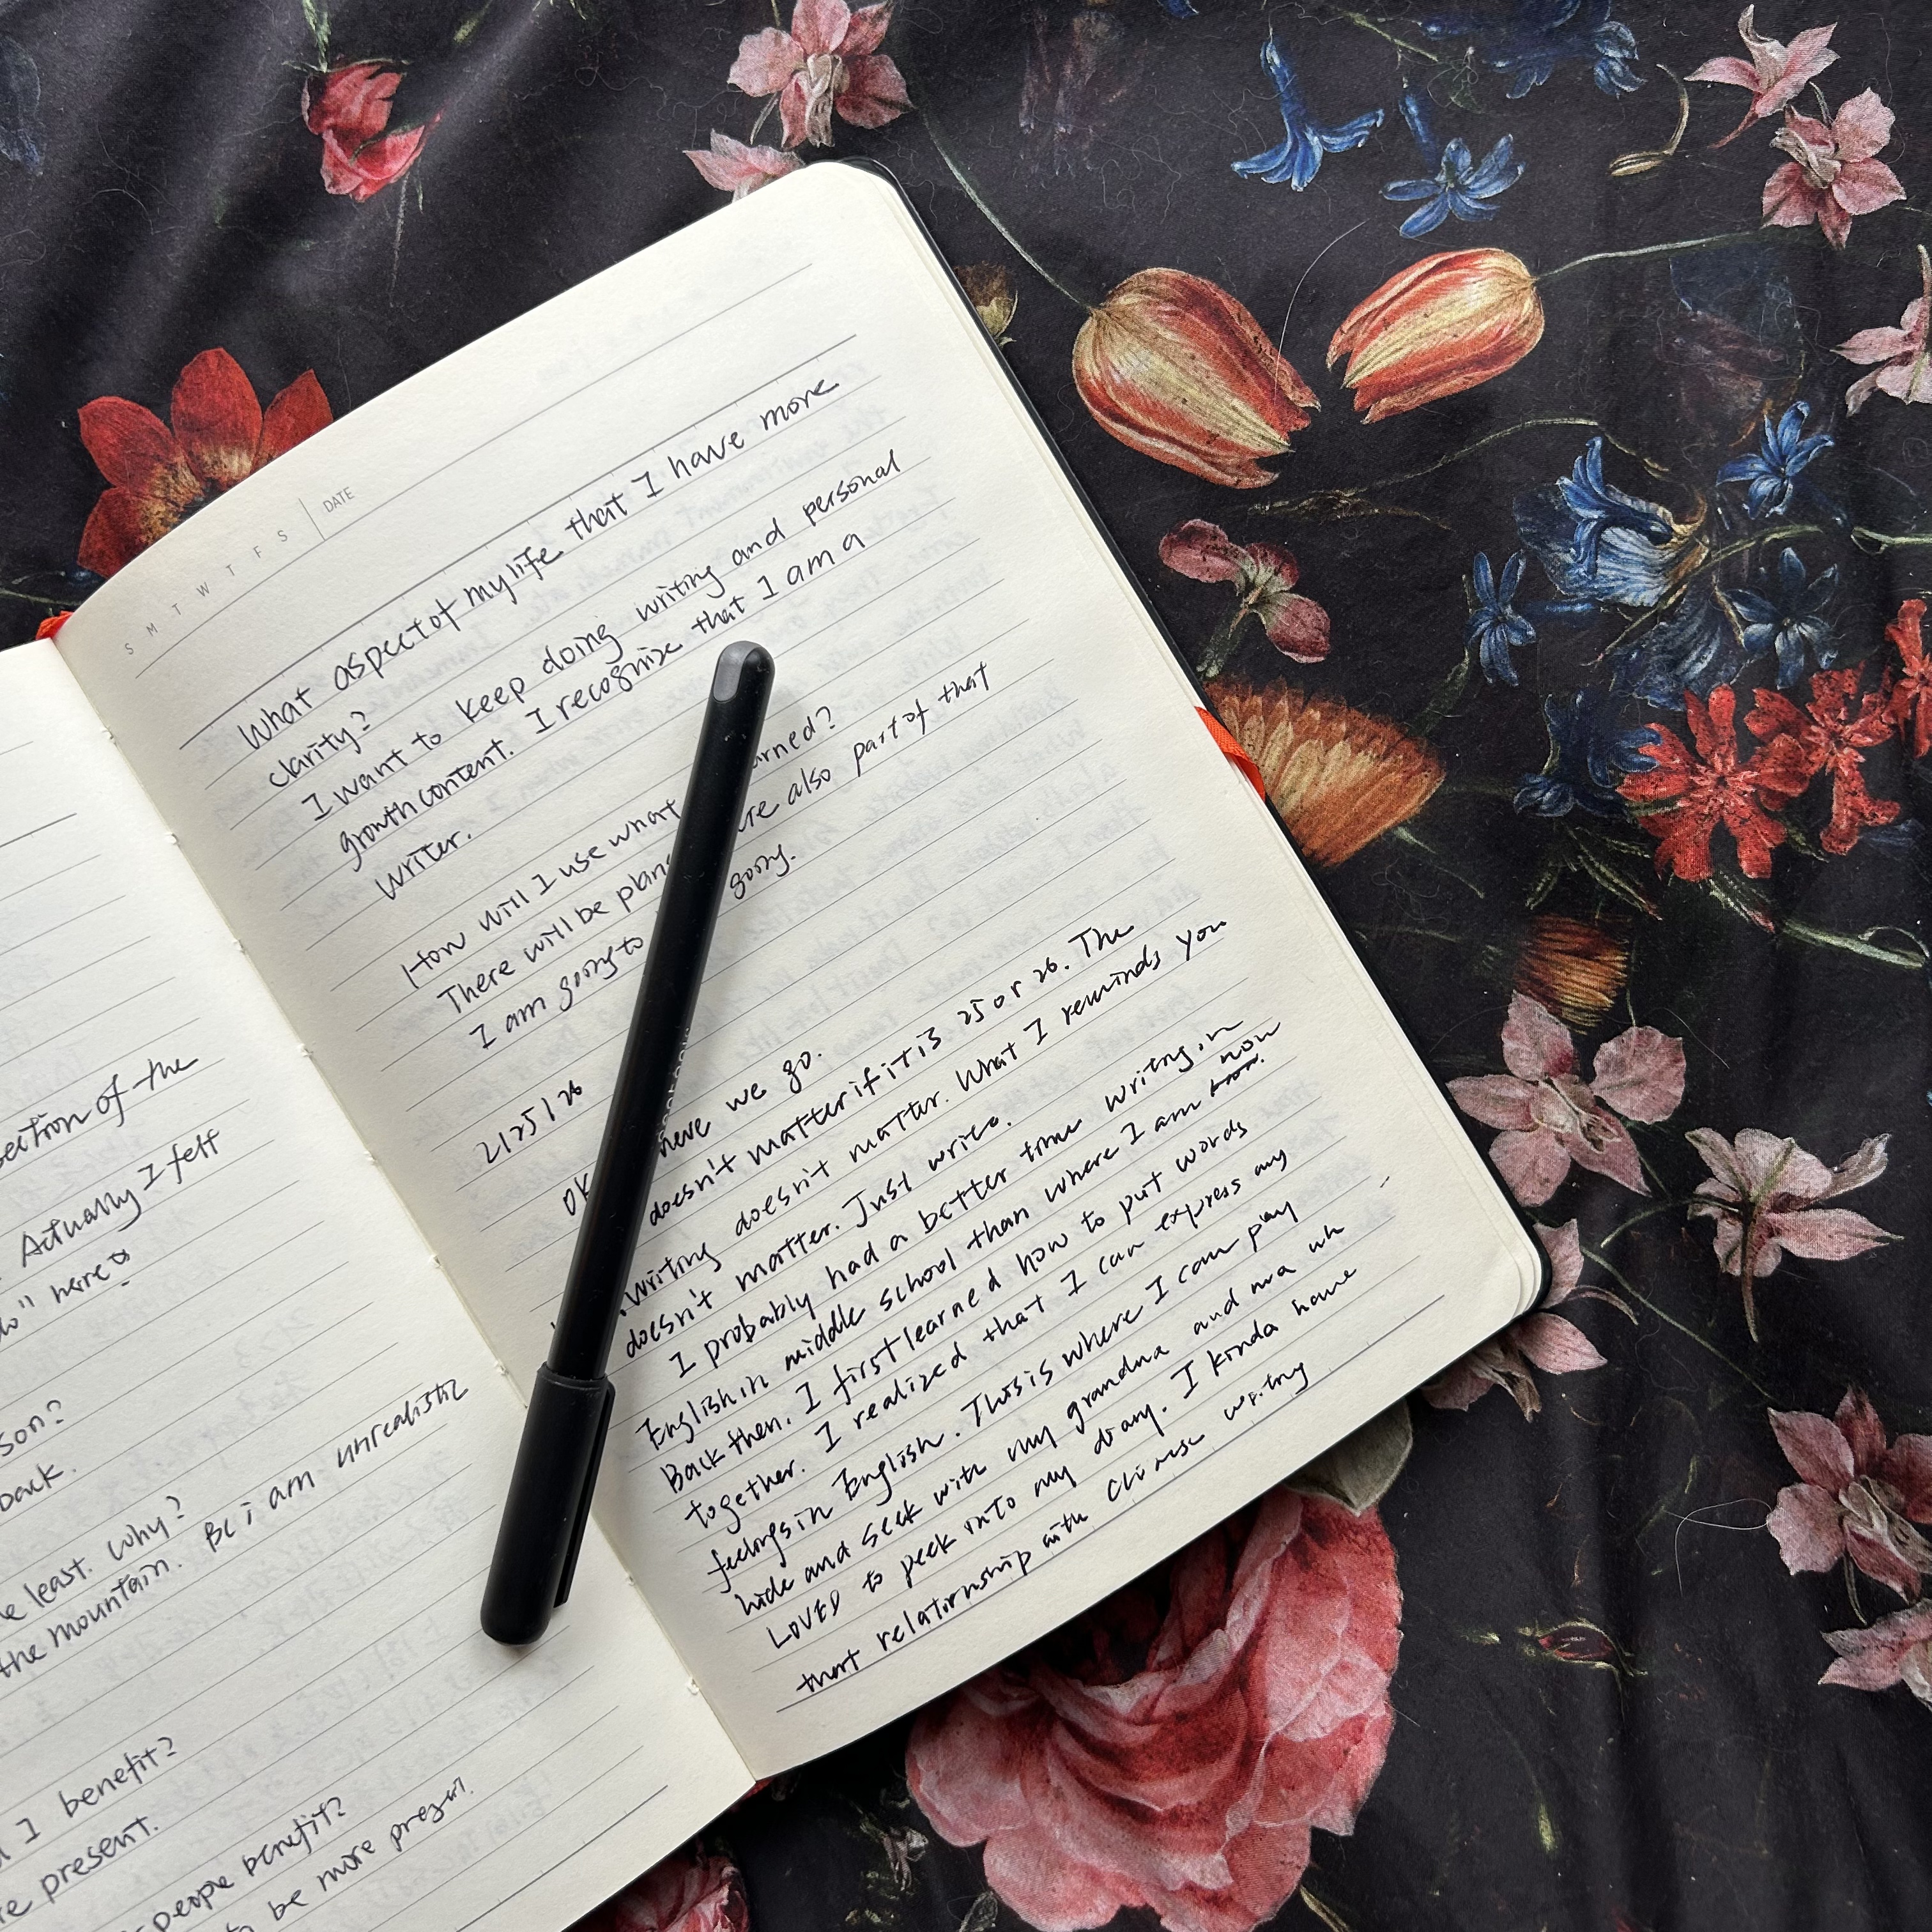 section of the
Actually I felt
do" here
son?
back.
least. Why?
the mountain. Bc i am unrealistic
I benefit?
present.
people benefit?
be more present.
S M T W T F S DATE
What aspect of my life that I have more
clarity?
I want to keep doing writing and personal
growth content. I recognize that I am a
writer.
How will I use what
There will be also part of that
I am going to going.
2/25/26
here we go.
doesn't matter if it is 25 or 26. The
writing doesn't matter. What I reminds you
doesn't matter. Just write.
I probably had a better time writing in
English in middle school than where I am now
Back then. I first learned how to put words
together. I realized that I can express my
feelings in English. This is where I can play
hide and seek with my grandma and ma
LOVED to peek into my diary. I kinda have
that relationship with Chinese writing